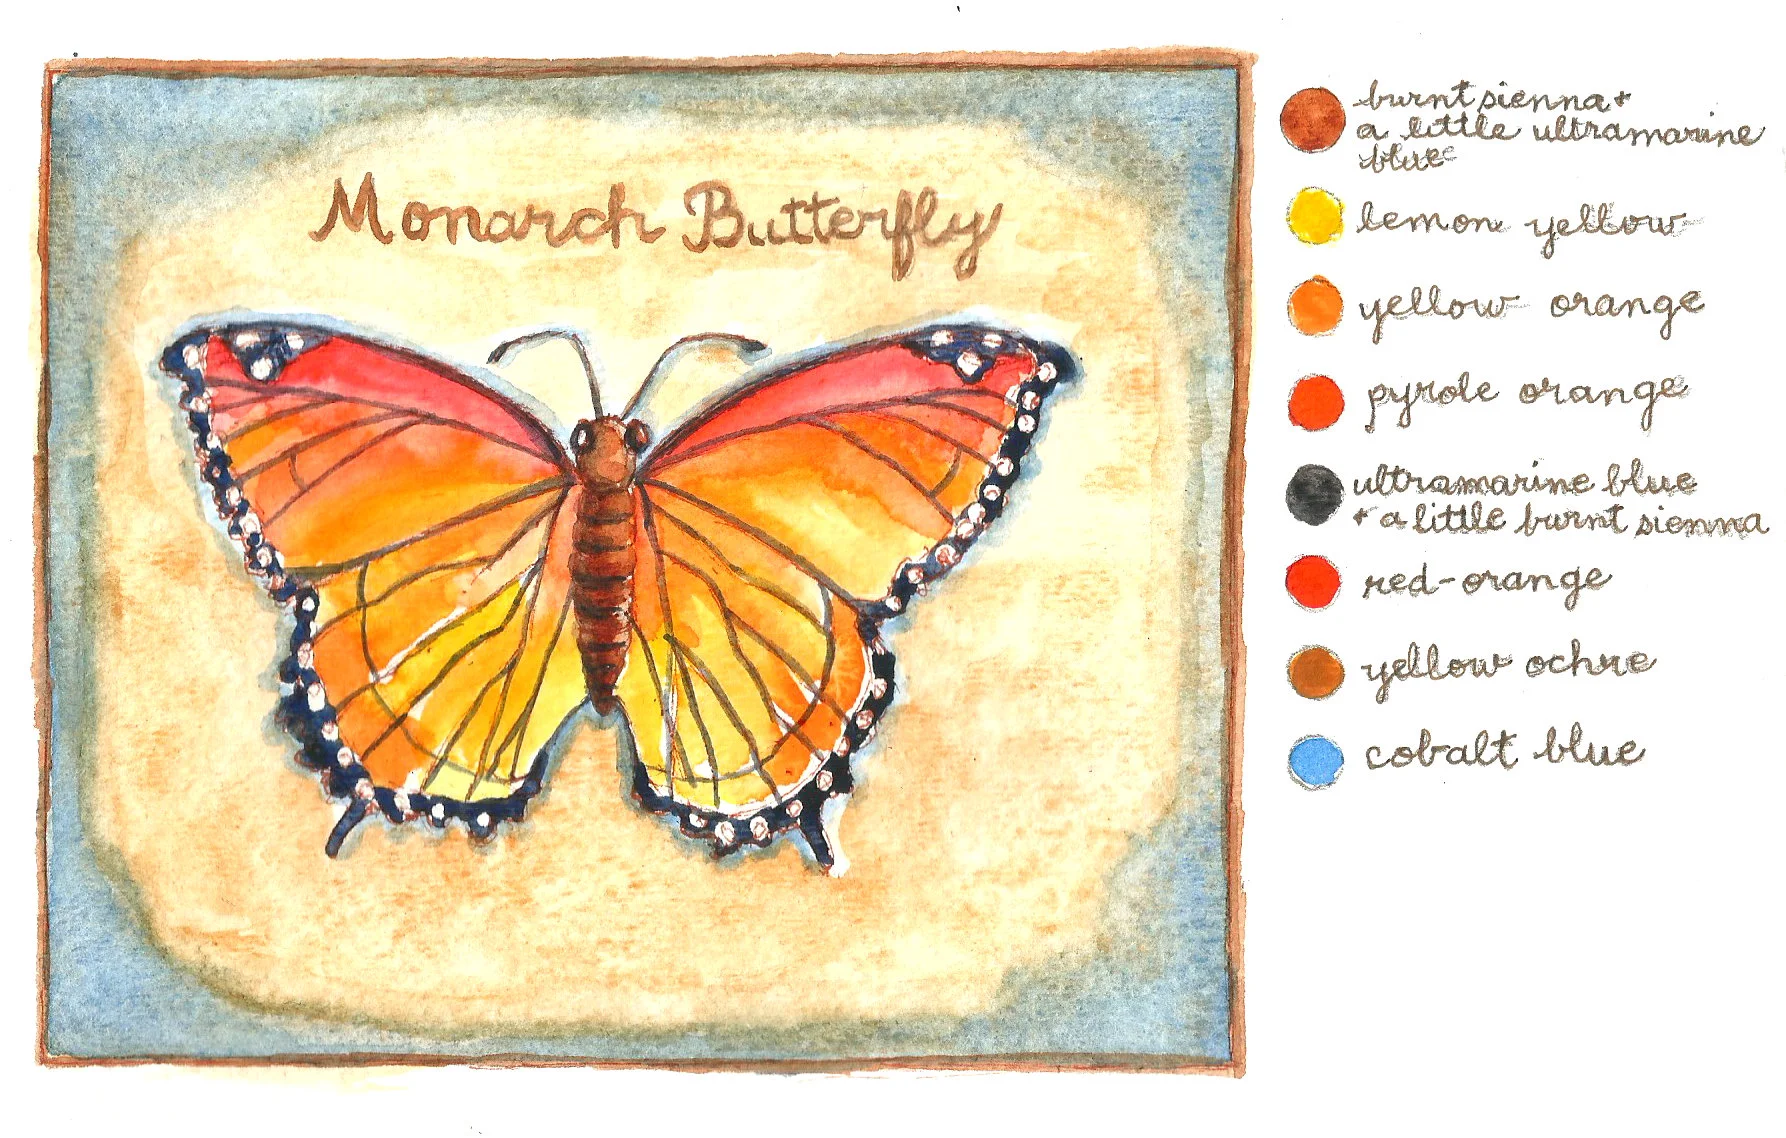 Monarch Butterfly
burnt sienna +
a little ultramarine
blue
lemon yellow
yellow orange
pyrole orange
ultramarine blue
+ a little burnt sienna
red-orange
yellow ochre
cobalt blue